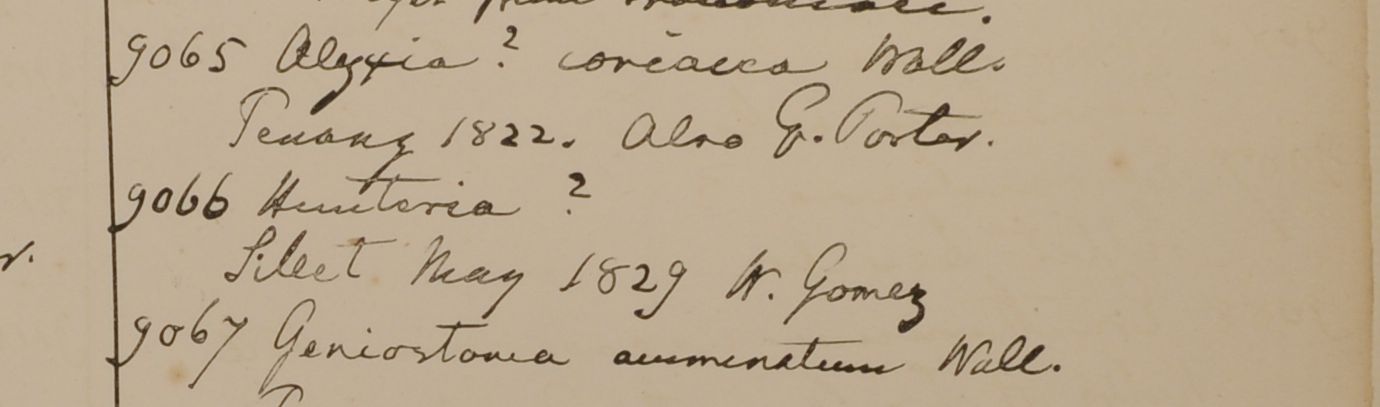 9065 Alyxia? coriacea Wall.
Penang 1822. Also G. Porter.
9066 Hunteria ?
Silet May 1829 W. Gomez
9067 Geniostoma acuminatum Wall.